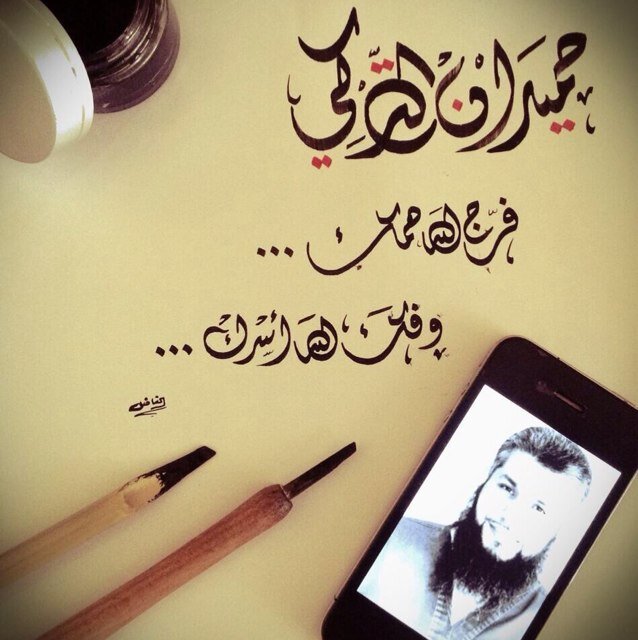 حميدان التركي
فرّج الله همك ...
وفكَّ الله أسرك ...